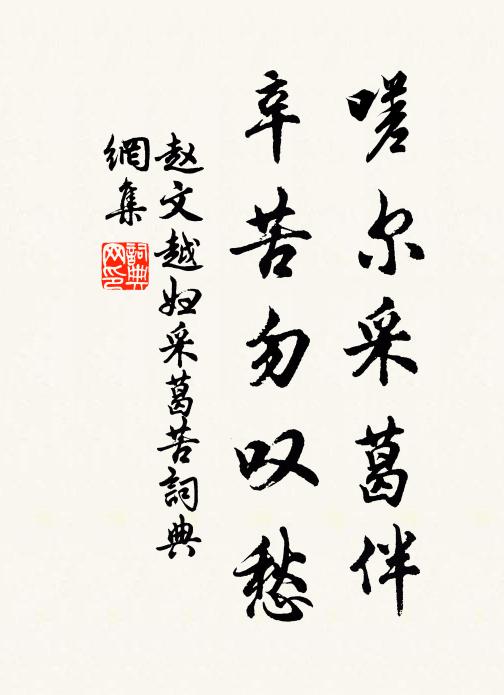 嗟尔采葛伴
辛苦勿叹愁
赵文越妇采葛苦詞典
網集
詞典
网印